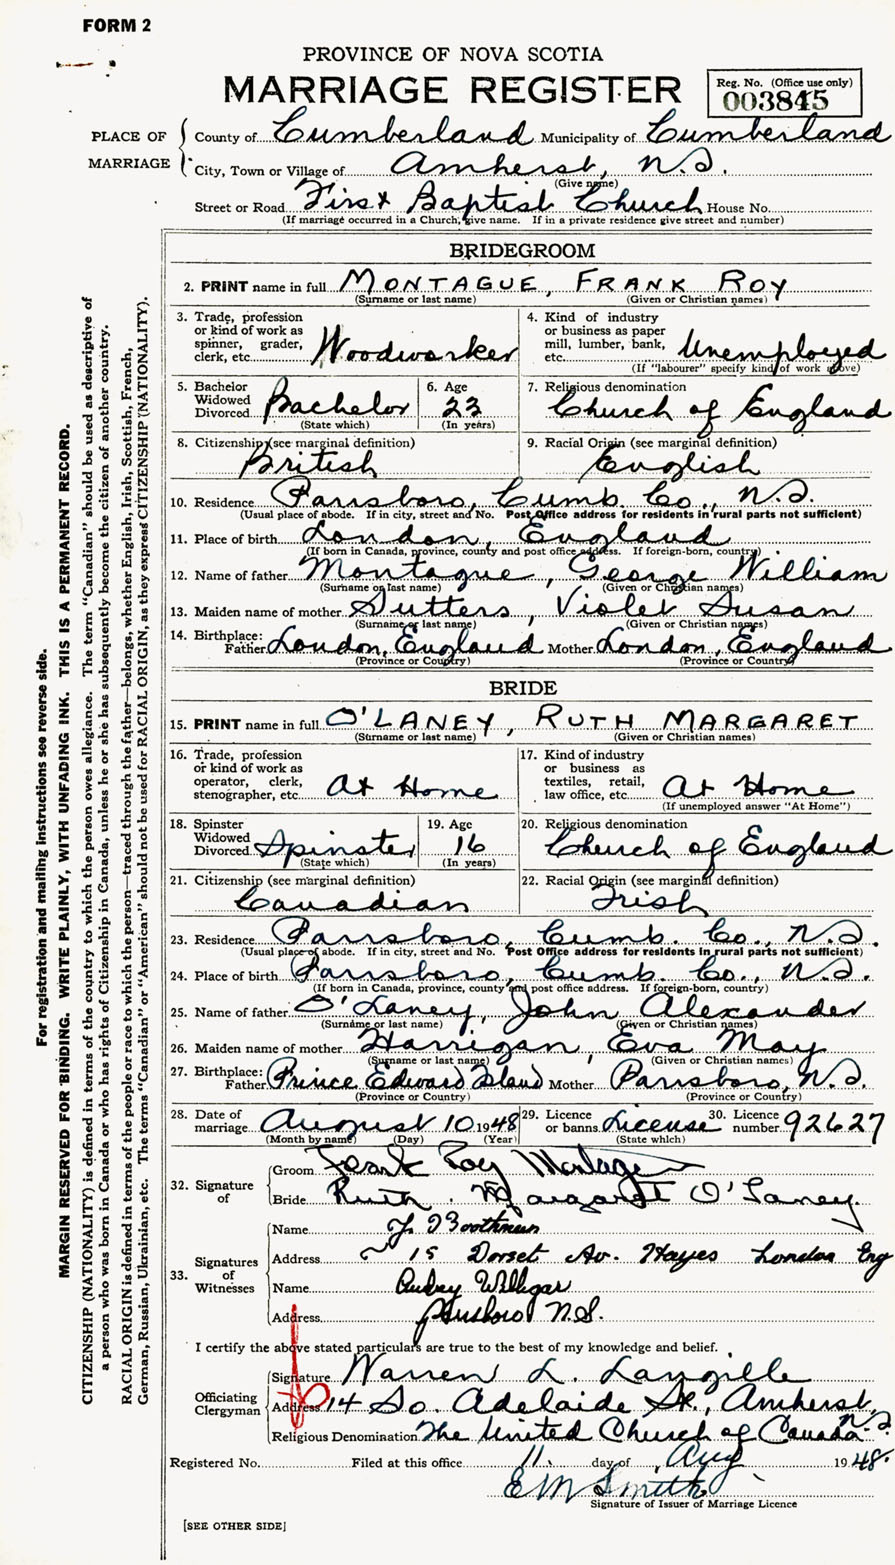 FORM 2
PROVINCE OF NOVA SCOTIA
MARRIAGE REGISTER
Reg. No. (Office use only)
003845
PLACE OF MARRIAGE
County of Cumberland Municipality of Cumberland
City, Town or Village of Amherst, N.S.
(Give name)
Street or Road First Baptist Church House No.
(If marriage occurred in a Church, give name. If in a private residence give street and number)
BRIDEGROOM
2. PRINT name in full MONTAGUE, FRANK ROY
(Surname or last name) (Given or Christian names)
3. Trade, profession or kind of work as spinner, grader, clerk, etc. Woodworker
4. Kind of industry or business as paper mill, lumber, bank, etc. Unemployed
(If "labourer" specify kind of work above)
5. Bachelor Widowed Divorced Bachelor
(State which)
6. Age 23
(In years)
7. Religious denomination
Church of England
8. Citizenship (see marginal definition)
British
9. Racial Origin (see marginal definition)
English
10. Residence Parrsboro, Cumb. Co., N.S.
(Usual place of abode. If in city, street and No. Post Office address for residents in rural parts not sufficient)
11. Place of birth London, England
(If born in Canada, province, county and post office address. If foreign-born, country)
12. Name of father Montague, George William
(Surname or last name) (Given or Christian names)
13. Maiden name of mother Sutters, Violet Susan
(Surname or last name) (Given or Christian names)
14. Birthplace: Father London, England Mother London, England
(Province or Country) (Province or Country)
BRIDE
15. PRINT name in full O'LANEY, RUTH MARGARET
(Surname or last name) (Given or Christian names)
16. Trade, profession or kind of work as operator, clerk, stenographer, etc. At Home
17. Kind of industry or business as textiles, retail, law office, etc. At Home
(If unemployed answer "At Home")
18. Spinster Widowed Divorced Spinster
(State which)
19. Age 16
(In years)
20. Religious denomination
Church of England
21. Citizenship (see marginal definition)
Canadian
22. Racial Origin (see marginal definition)
Irish
23. Residence Parrsboro, Cumb. Co., N.S.
(Usual place of abode. If in city, street and No. Post Office address for residents in rural parts not sufficient)
24. Place of birth Parrsboro, Cumb. Co., N.S.
(If born in Canada, province, county and post office address. If foreign-born, country)
25. Name of father O'Laney, John Alexander
(Surname or last name) (Given or Christian names)
26. Maiden name of mother Harrigan, Eva May
(Surname or last name) (Given or Christian names)
27. Birthplace: Father Prince Edward Island Mother Parrsboro, N.S.
(Province or Country) (Province or Country)
28. Date of marriage August 10 1948
(Month by name) (Day) (Year)
29. Licence or banns License
(State which)
30. Licence number 92627
32. Signature of
Groom Frank Roy Montague
Bride Ruth Margaret O'Laney
33. Signatures of Witnesses
Name Boothman
Address 15 Dorset Av. Hayes London Eng
Name Aubrey Willigar
Address Parrsboro N.S.
I certify the above stated particulars are true to the best of my knowledge and belief.
Officiating Clergyman
Signature Warren L. Langille
Address 14 So. Adelaide St., Amherst, N.S.
Religious Denomination The United Church of Canada
Registered No. Filed at this office 11. day of Aug 1948.
E M Smith
Signature of Issuer of Marriage Licence
[SEE OTHER SIDE]
For registration and mailing instructions see reverse side.
MARGIN RESERVED FOR BINDING. WRITE PLAINLY, WITH UNFADING INK. THIS IS A PERMANENT RECORD.
CITIZENSHIP (NATIONALITY) is defined in terms of the country to which the person owes allegiance. The term "Canadian" should be used as descriptive of
a person who was born in Canada or who has rights of Citizenship in Canada, unless he or she has subsequently become the citizen of another country.
RACIAL ORIGIN is defined in terms of the people or race to which the person—traced through the father—belongs, whether English, Irish, Scottish, French,
German, Russian, Ukrainian, etc. The terms "Canadian" or "American" should not be used for RACIAL ORIGIN, as they express CITIZENSHIP (NATIONALITY).